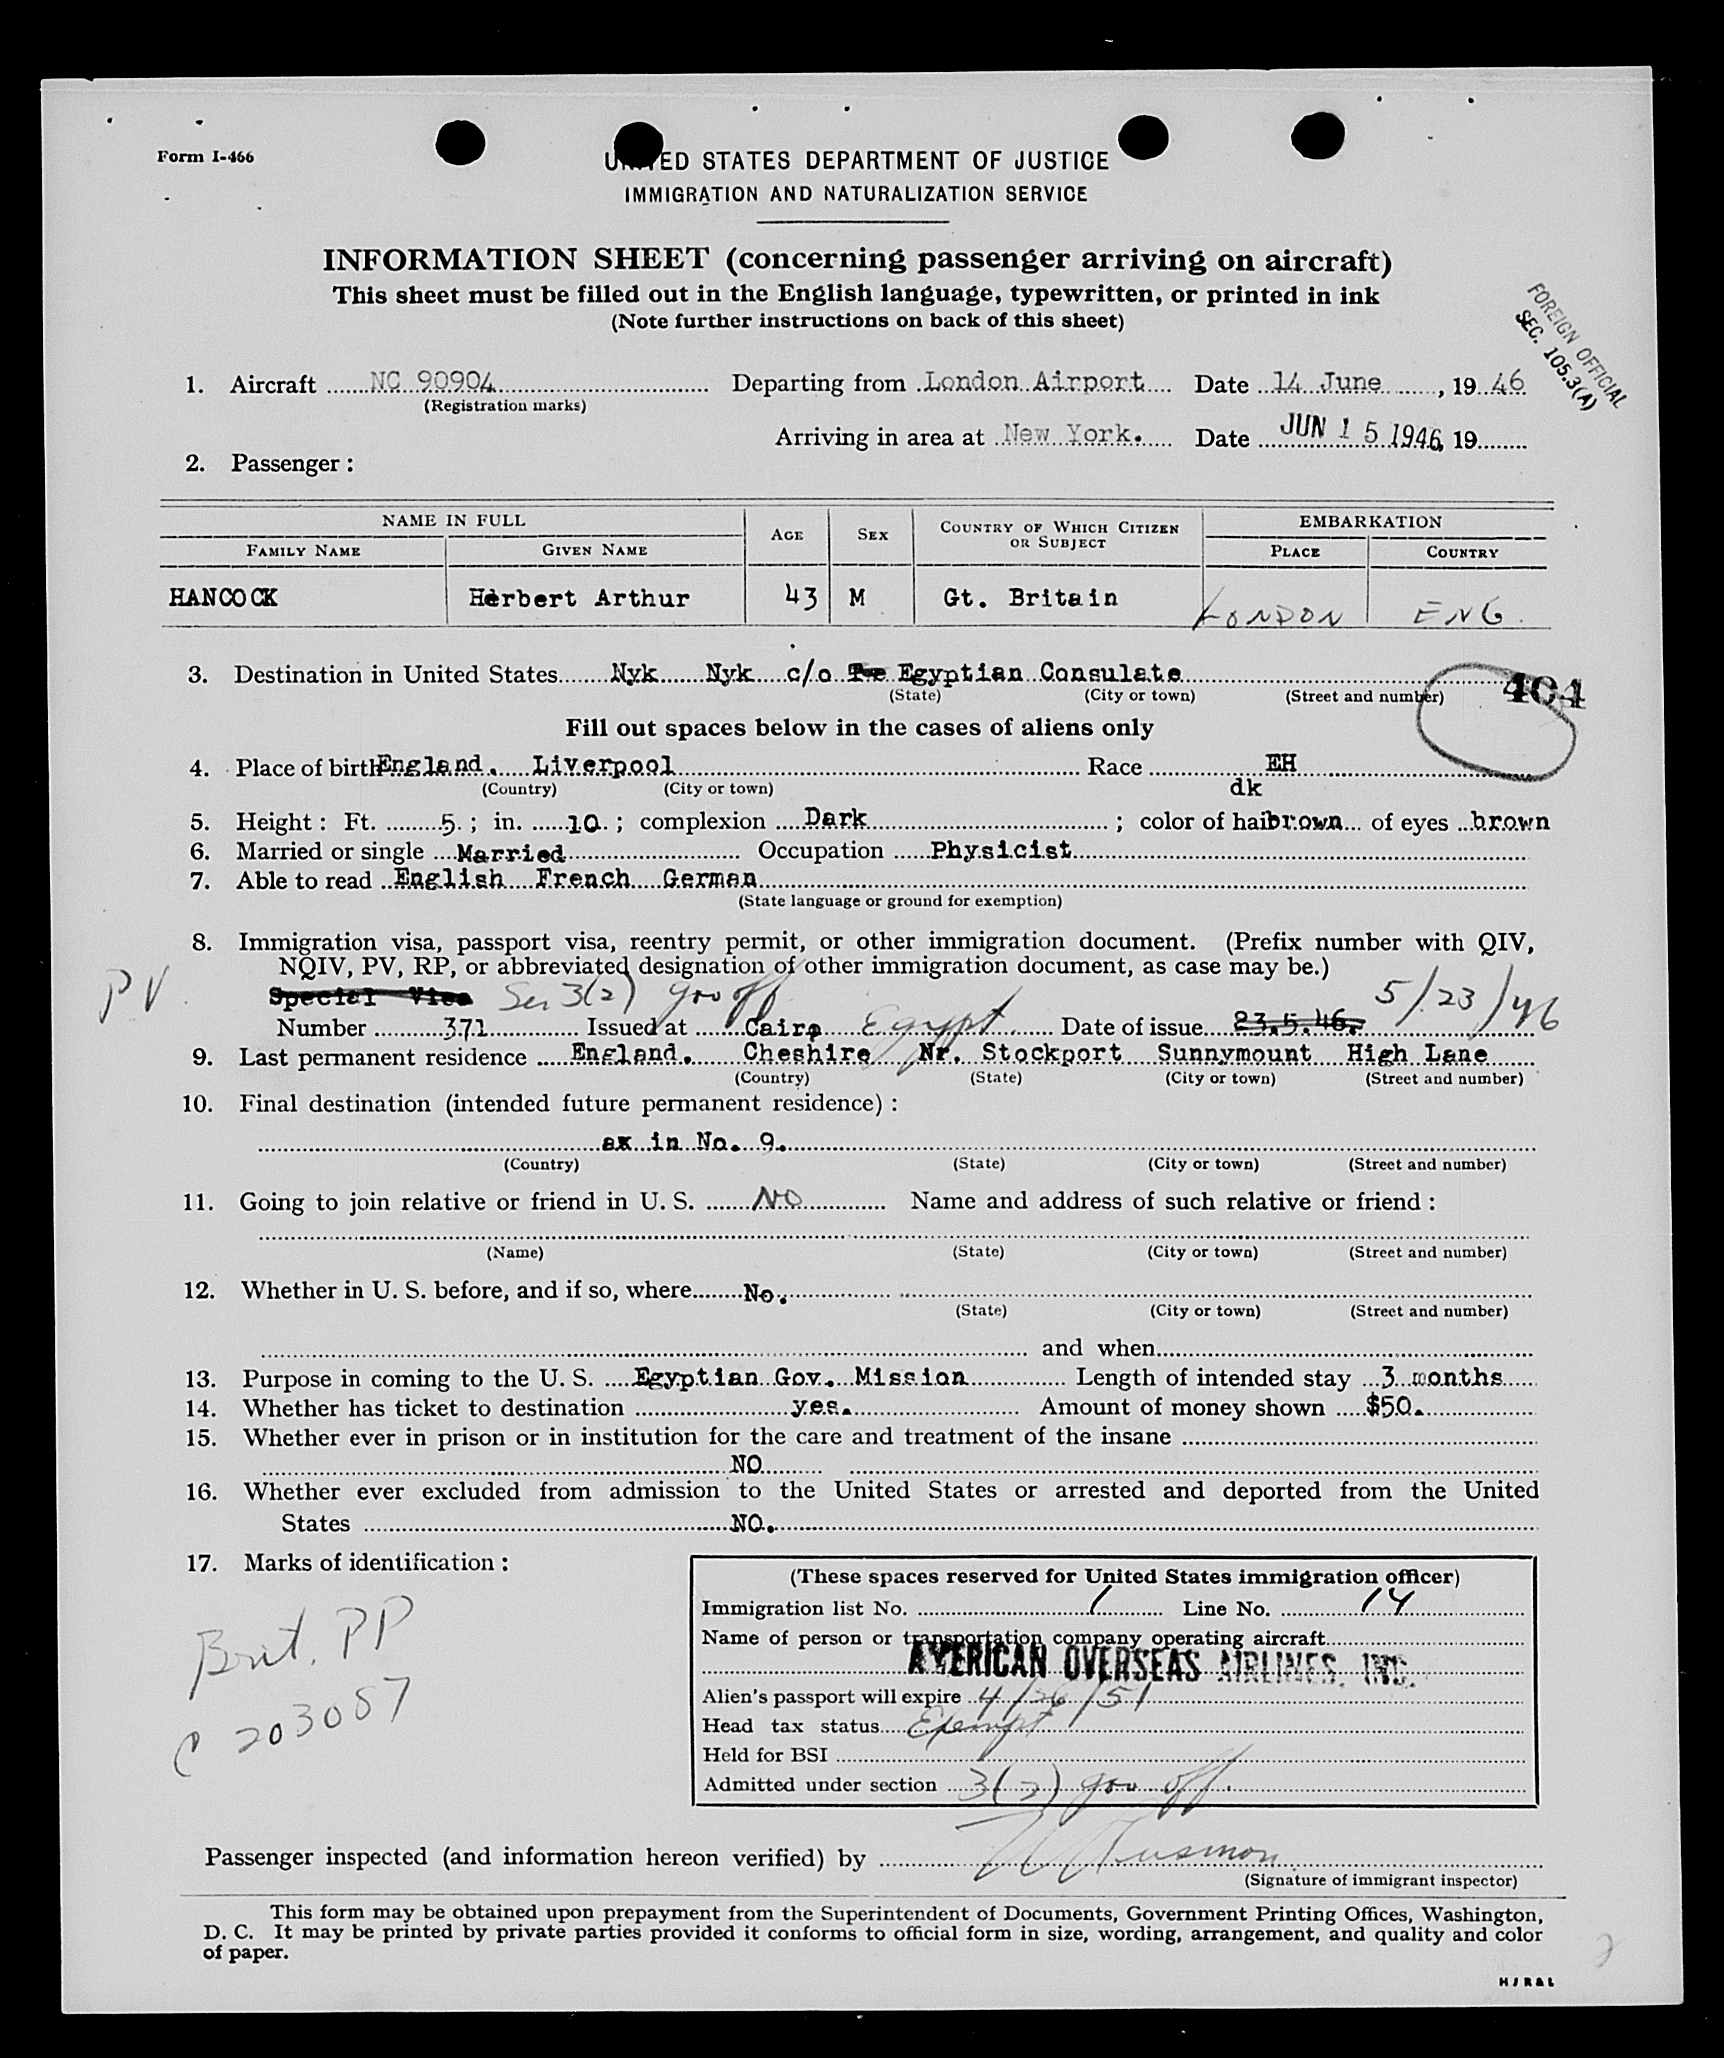 Form I-466
UNITED STATES DEPARTMENT OF JUSTICE
IMMIGRATION AND NATURALIZATION SERVICE
INFORMATION SHEET (concerning passenger arriving on aircraft)
This sheet must be filled out in the English language, typewritten, or printed in ink
(Note further instructions on back of this sheet)
FOREIGN OFFICIAL
SEC. 105.3(A)
1. Aircraft NC 90904 Departing from London Airport Date 14 June, 19 46
(Registration marks)
Arriving in area at New York. Date JUN 15 1946, 19
2. Passenger:
NAME IN FULL AGE SEX COUNTRY OF WHICH CITIZEN OR SUBJECT EMBARKATION
FAMILY NAME GIVEN NAME PLACE COUNTRY
HANCOCK Herbert Arthur 43 M Gt. Britain LONDON ENG.
3. Destination in United States Nyk Nyk c/o Egyptian Consulate
(State) (City or town) (Street and number)
404
Fill out spaces below in the cases of aliens only
4. Place of birth England. Liverpool Race EH
(Country) (City or town) dk
5. Height: Ft. 5; in. 10; complexion Dark; color of hair brown of eyes brown
6. Married or single Married Occupation Physicist
7. Able to read English French German
(State language or ground for exemption)
8. Immigration visa, passport visa, reentry permit, or other immigration document. (Prefix number with QIV,
NQIV, PV, RP, or abbreviated designation of other immigration document, as case may be.)
PV Special Visa Sec 3(2) gov off 5/23/46
Number 371 Issued at Cairo Egypt Date of issue 23.5.46.
9. Last permanent residence England. Cheshire Nr. Stockport Sunnymount High Lane
(Country) (State) (City or town) (Street and number)
10. Final destination (intended future permanent residence):
as in No. 9.
(Country) (State) (City or town) (Street and number)
11. Going to join relative or friend in U. S. NO Name and address of such relative or friend:
(Name) (State) (City or town) (Street and number)
12. Whether in U. S. before, and if so, where No.
(State) (City or town) (Street and number)
and when
13. Purpose in coming to the U. S. Egyptian Gov. Mission Length of intended stay 3 months
14. Whether has ticket to destination yes. Amount of money shown $50.
15. Whether ever in prison or in institution for the care and treatment of the insane
NO
16. Whether ever excluded from admission to the United States or arrested and deported from the United
States NO.
17. Marks of identification:
Brit. PP
C 203087
(These spaces reserved for United States immigration officer)
Immigration list No. 1 Line No. 14
Name of person or transportation company operating aircraft
AMERICAN OVERSEAS AIRLINES, INC.
Alien's passport will expire 4/26/51
Head tax status Exempt
Held for BSI
Admitted under section 3(2) gov off.
Passenger inspected (and information hereon verified) by
(Signature of immigrant inspector)
This form may be obtained upon prepayment from the Superintendent of Documents, Government Printing Offices, Washington,
D. C. It may be printed by private parties provided it conforms to official form in size, wording, arrangement, and quality and color
of paper.
2